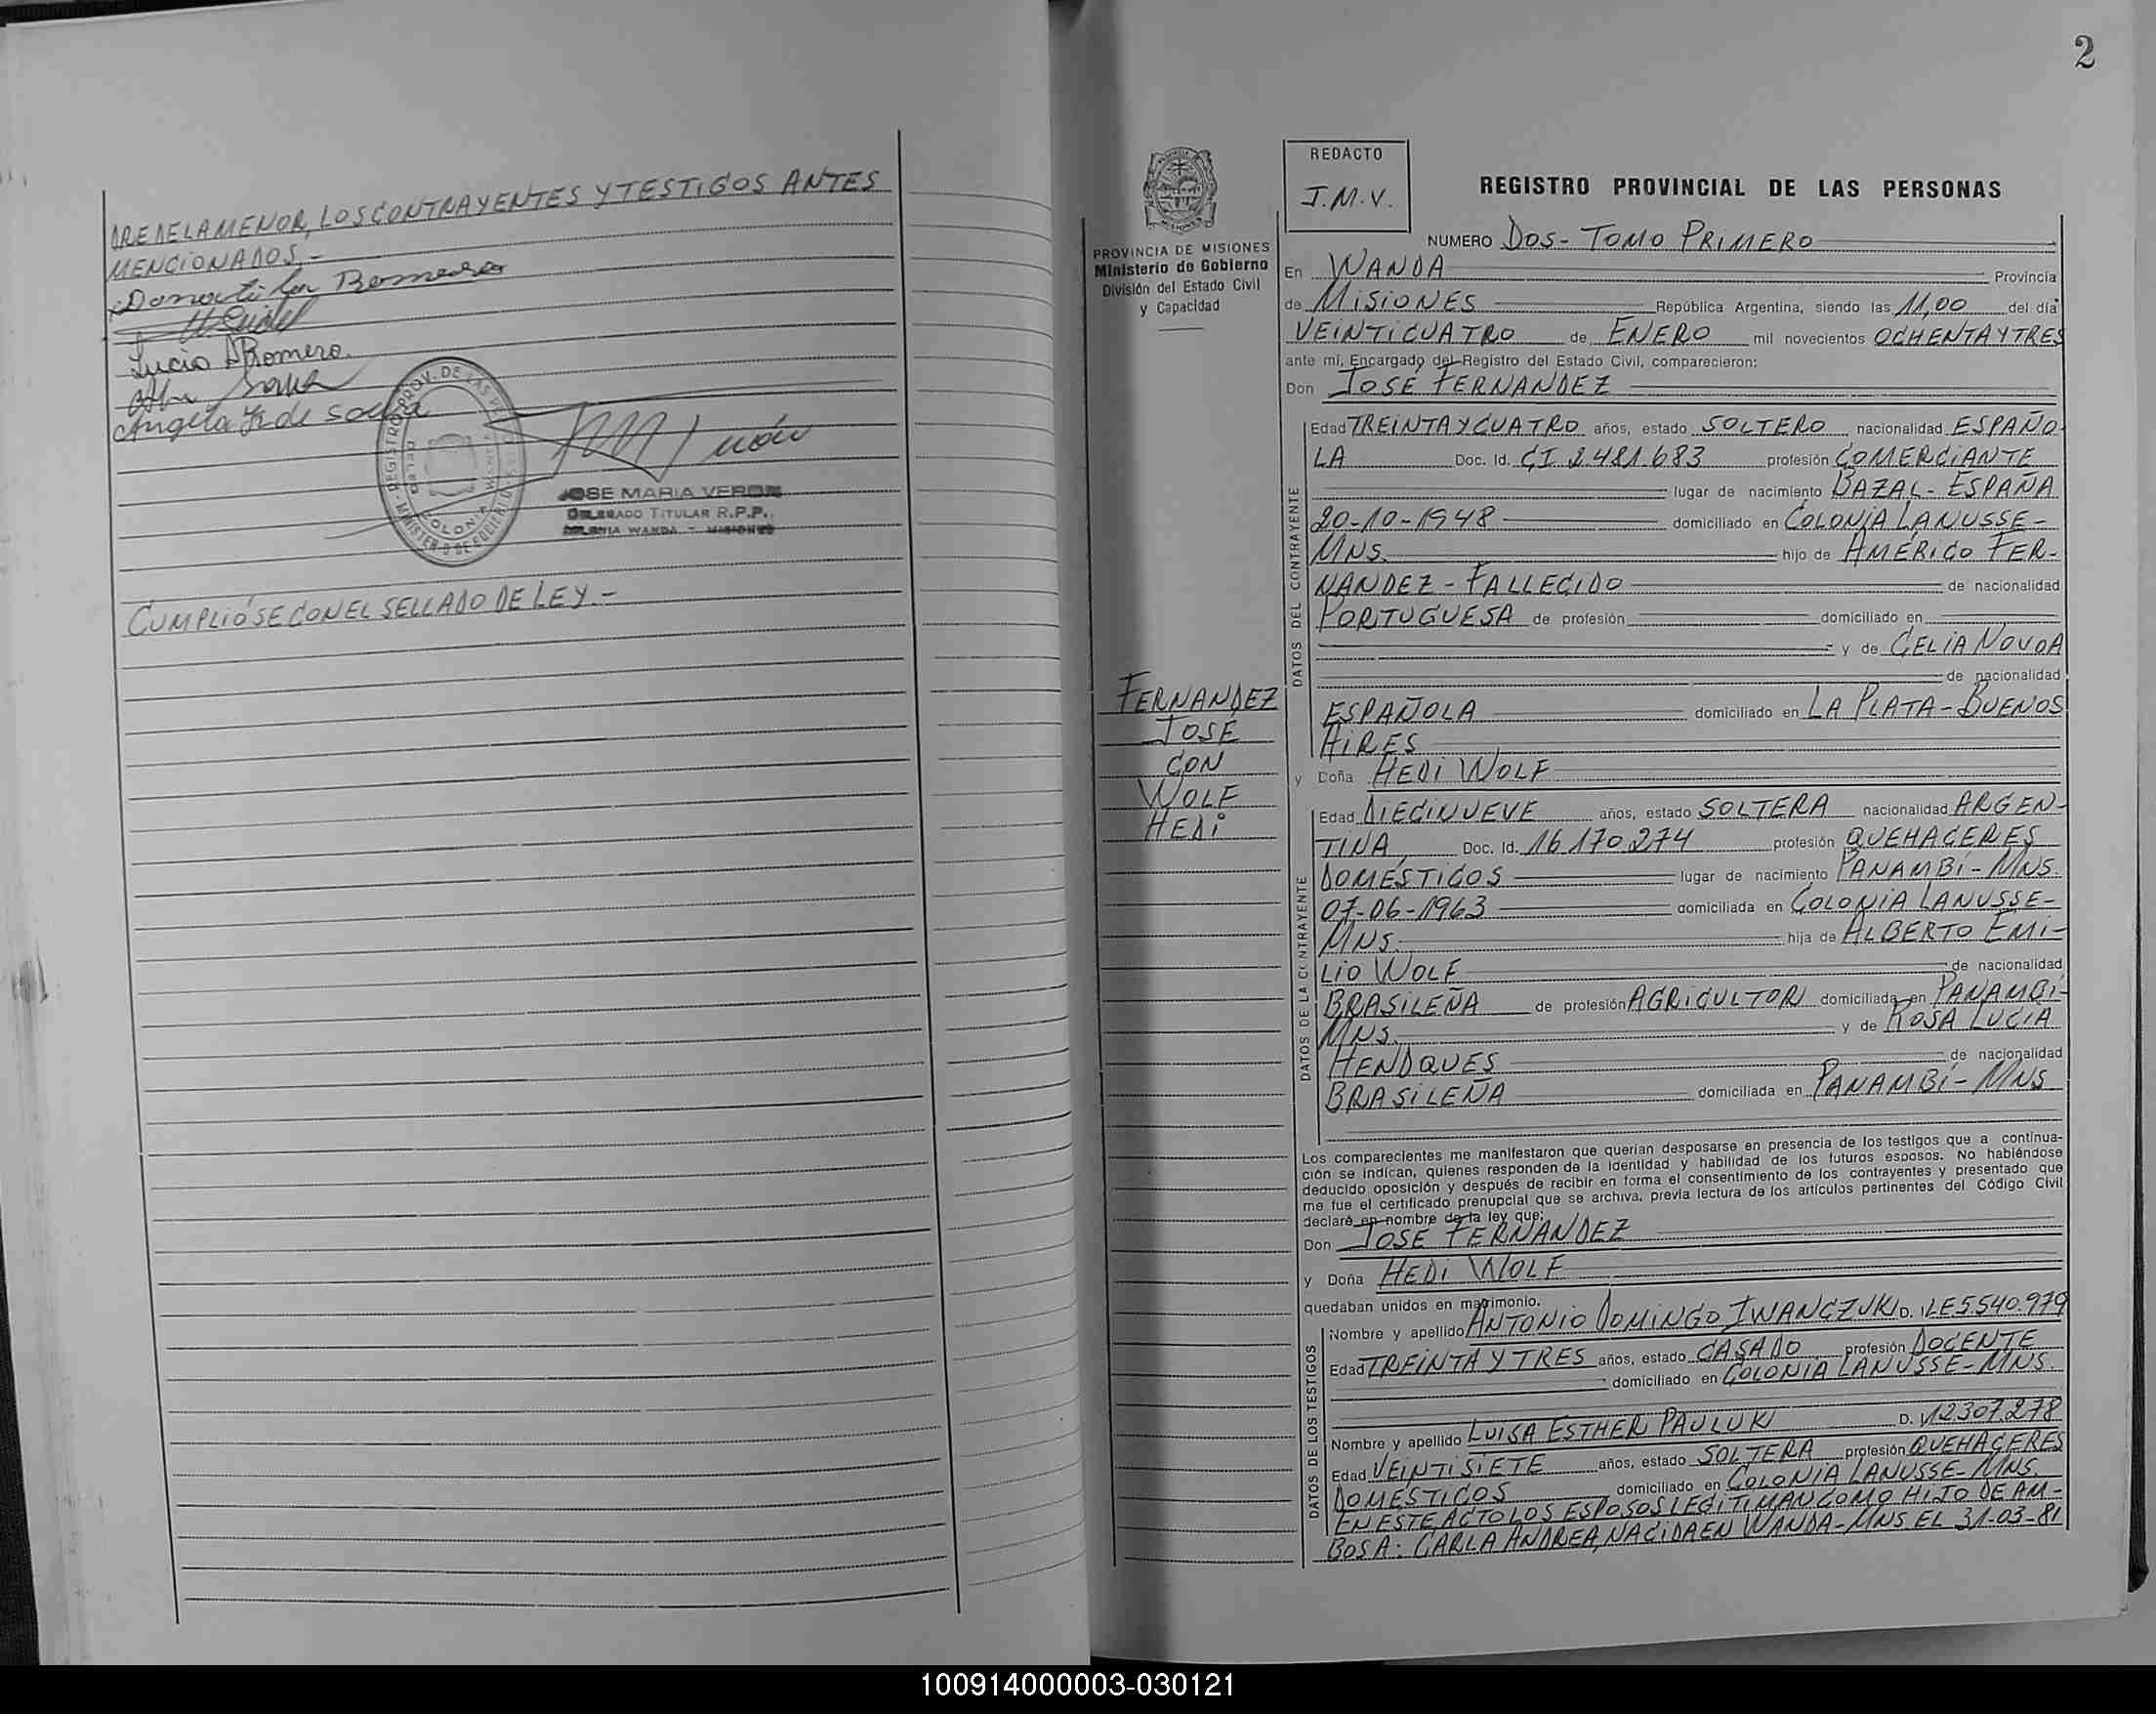 DRE DE LA MENOR, LOS CONTRAYENTES Y TESTIGOS ANTES
MENCIONADOS.-
Romero
Lucio Romero.
Angela de
JOSE MARIA VERON
DELEGADO TITULAR R.P.P.
COLONIA WANDA - MISIONES
CUMPLIÓSE CON EL SELLADO DE LEY.-
2
PROVINCIA DE MISIONES
Ministerio de Gobierno
División del Estado Civil
y Capacidad
FERNANDEZ
JOSÉ
CON
WOLF
HEDI
REDACTO
J.M.V.
REGISTRO PROVINCIAL DE LAS PERSONAS
NUMERO DOS - TOMO PRIMERO
En WANDA Provincia
de MISIONES República Argentina, siendo las 11,00 del día
VEINTICUATRO de ENERO mil novecientos OCHENTA Y TRES
ante mí, Encargado del Registro del Estado Civil, comparecieron:
Don JOSE FERNANDEZ
DATOS DEL CONTRAYENTE
Edad TREINTA Y CUATRO años, estado SOLTERO nacionalidad ESPAÑO
LA Doc. Id. CI 2.481.683 profesión COMERCIANTE
lugar de nacimiento BAZAL - ESPAÑA
20-10-1948 domiciliado en COLONIA LANUSSE-
MNS. hijo de AMÉRICO FER-
NANDEZ - FALLECIDO de nacionalidad
PORTUGUESA de profesión domiciliado en
y de CELIA NOVOA
de nacionalidad
ESPAÑOLA domiciliado en LA PLATA - BUENOS
AIRES
y Doña HEDI WOLF
DATOS DE LA CONTRAYENTE
Edad DIECINUEVE años, estado SOLTERA nacionalidad ARGEN-
TINA Doc. Id. 16.170.274 profesión QUEHACERES
DOMÉSTICOS lugar de nacimiento PANAMBÍ - MNS.
07-06-1963 domiciliada en COLONIA LANUSSE-
MNS. hija de ALBERTO EMI-
LIO WOLF de nacionalidad
BRASILEÑA de profesión AGRICULTOR domiciliada en PANAMBÍ-
MNS. y de ROSA LUCÍA
HENDQUES de nacionalidad
BRASILEÑA domiciliada en PANAMBÍ - MNS
Los comparecientes me manifestaron que querían desposarse en presencia de los testigos que a continua-
ción se indican, quienes responden de la identidad y habilidad de los futuros esposos. No habiéndose
deducido oposición y después de recibir en forma el consentimiento de los contrayentes y presentado que
me fue el certificado prenupcial que se archiva, previa lectura de los artículos pertinentes del Código Civil
declaré en nombre de la ley que:
Don JOSE FERNANDEZ
y Doña HEDI WOLF
quedaban unidos en matrimonio.
DATOS DE LOS TESTIGOS
Nombre y apellido ANTONIO DOMINGO IWANCZUK D. LE 5.540.979
Edad TREINTA Y TRES años, estado CASADO profesión DOCENTE
domiciliado en COLONIA LANUSSE - MNS.
Nombre y apellido LUISA ESTHER PAULUK D. 12.307.278
Edad VEINTISIETE años, estado SOLTERA profesión QUEHACERES
DOMÉSTICOS domiciliado en COLONIA LANUSSE - MNS.
EN ESTE ACTO LOS ESPOSOS LEGITIMAN COMO HIJO DE AM-
BOS A: CARLA ANDREA, NACIDA EN WANDA - MNS EL 31-03-81
100914000003-030121